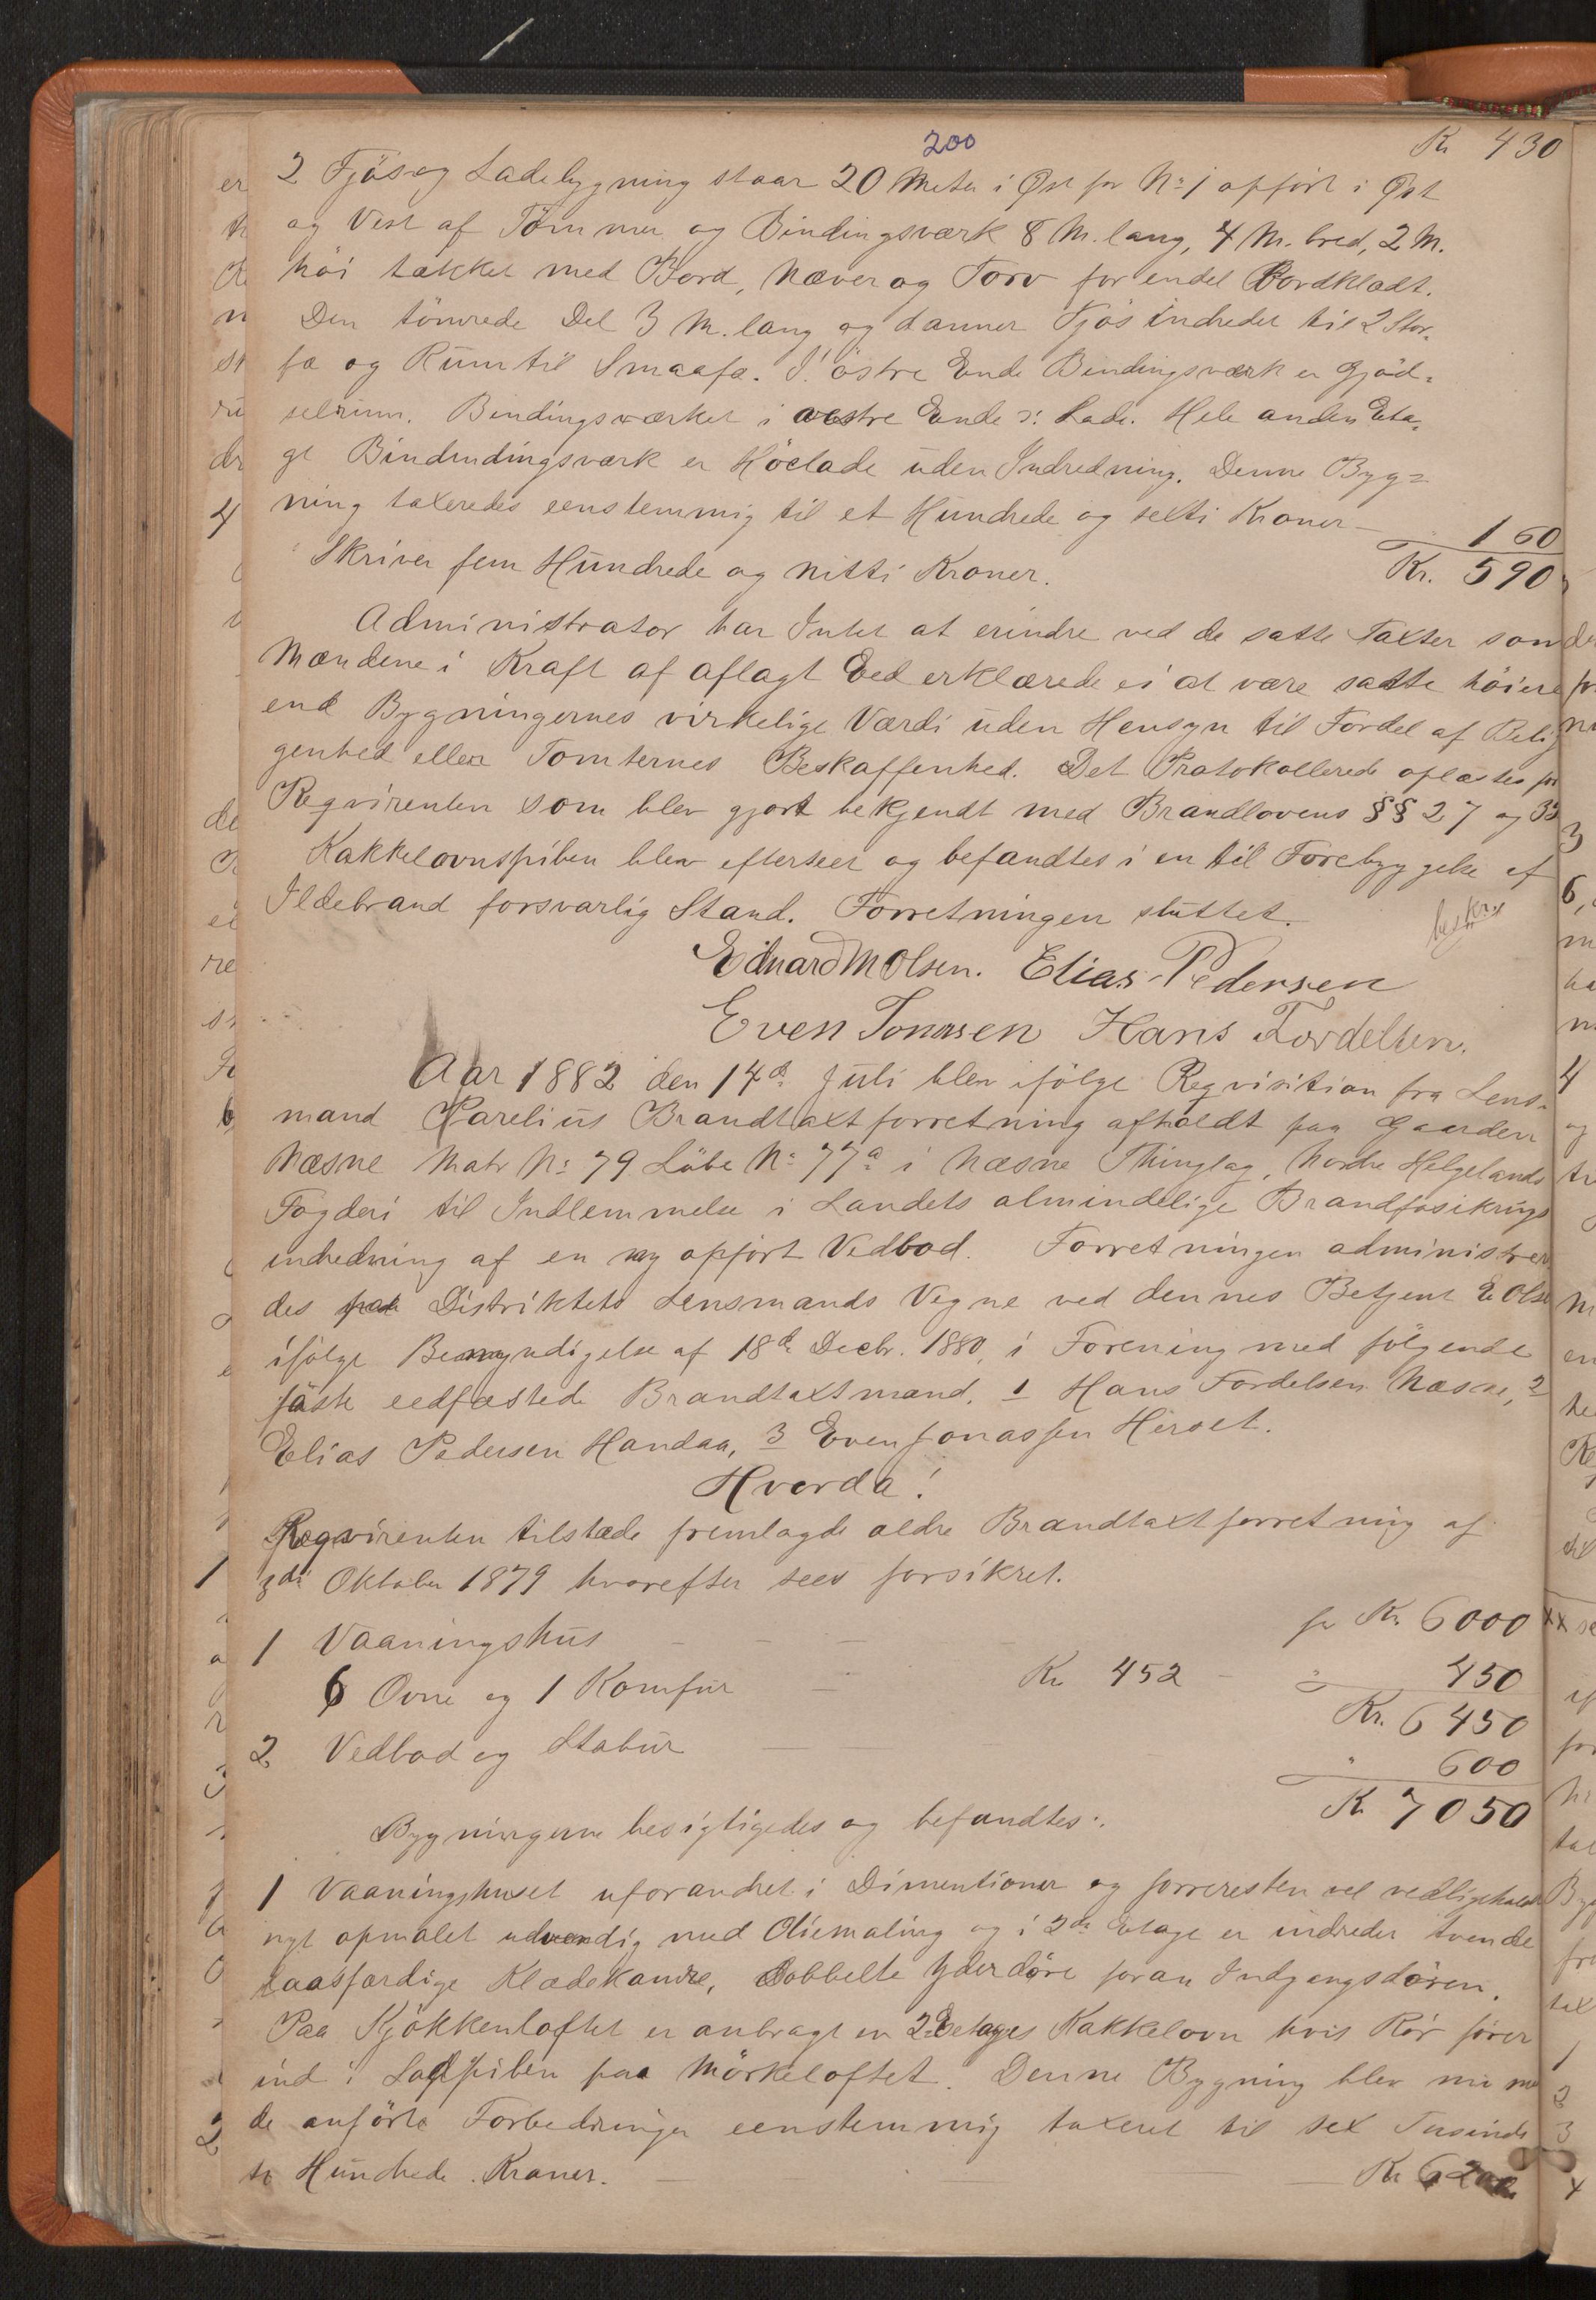 200
Kr 430
2 Fjös og Ladebygning staar 20 Meter i Øst for No 1 opført i Øst
og Vest af Tömmer og Bindingsværk 8 M. lang, 4 M. bred, 2 M.
höi tækket med Bord, Næver og Torv for endel Bordklædt.
Den tömrede Del 3 M. lang og danner Fjös indredet til 2 Stor-
fæ og Rum til Smaafæ. I östre Ende Bindingsværk er Gjöd-
selrum. Bindingsværket i vestre Ende er Lade. Hele anden Eta-
ge Bindindingsværk er Höelade uden Indredning. Denne Byg=
ning taxeredes eenstemmig til et Hundrede og sexti Kroner — 160
Skriver fem Hundrede og nitti Kroner. Kr. 590
Administrator har Intet at erindre ved de satte Taxter som
Mændene i Kraft af aflagt Eed erklærede ei at være satte höiere
end Bygningernes virkelige Værdi uden Hensyn til Fordel af Belig
genhed eller Tomternes Beskaffenhed. Det Protokollerede oplæstes for
Reqvirenten som blev gjort bekjendt med Brandlovens §§ 27 og 33
Kakkelovnspiben blev efterseet og befandtes i en til Forebyggelse af
Ildebrand forsvarlig Stand. Forretningen sluttet.
Edvard M Olsen. Elias Pedersen
Even Jonassen Hans Fordelsen.
Aar 1882 den 14de Juli blev ifölge Reqvisition fra Lens-
mand Parelius Brandtaxtforretning afholdt paa Gaarden
Næsne Matr No 79 Löbe No 77a i Næsne Thinglag, Nordre Helgelands
Fogderi til Indlemmelse i Landets almindelige Brandforsikrings
indredning af en ny opfört Vedbod. Forretningen administrer
des paa Distriktets Lensmands Vegne ved dennes Betjent E Olsen
ifölge Bemyndigelse af 18de Decbr. 1880, i Forening med fölgende
faste eedfæstede Brandtaxtmænd, 1 Hans Fordelsen Næsne, 2
Elias Pedersen Handaa, 3 Even Jonassen Hirset.
Hvorda!
Reqvirenten tilstæde fremlagde ældre Brandtaxtforretning af
3die Oktober 1879 hvorefter sees forsikret.
1 Vaaningshus — for Kr. 6000
6 Ovne og 1 Komfur — Kr 452 — " 450
Kr. 6450
2 Vedbod og Stabur — " 600
Kr 7050
Bygningerne besigtigedes og befandtes:
1 Vaaningshuset uforandret i Dimentioner og forresten vel vedligeholdt
nyt opmalet udvendig med Oliemaling og i 2de Etage er indredet tvende
laasfærdige Klædekamre, Dobbelte Yderdöre foran Indgangsdören.
Paa Kjökkenloftet er anbragt en 2 Etages Kakkelovn hvis Rör förer
ind i piben paa Mörkeloftet. Denne Bygning blev nu med
de anförte Forbedringer eenstemmig taxeret til sex Tusinde
to Hundrede Kroner. — Kr 6200